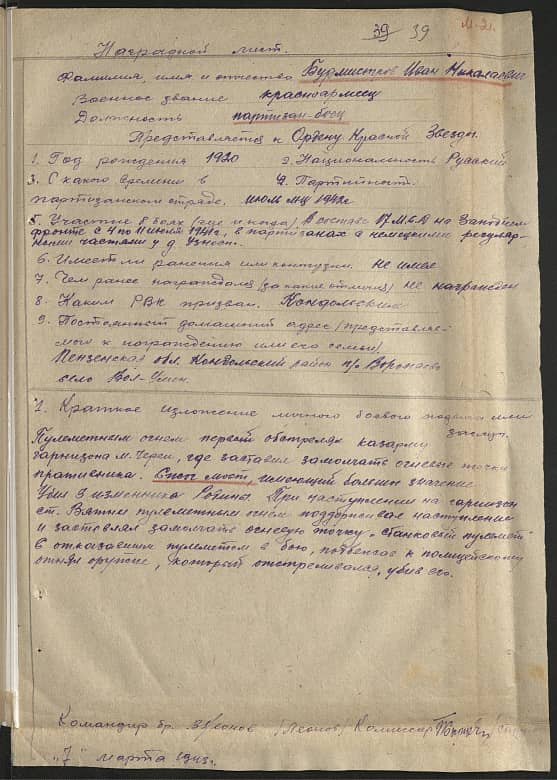 39 39 М-21.
Наградной лист.
Фамилия, имя и отчество Бурмистров Иван Николаевич
Военное звание красноармеец
Должность партизан-боец
Представляется к Ордену Красной Звезды
1. Год рождения 1920 2. Национальность Русский
3. С какого времени в 4. Партийност.
партизанском отряде. июль м-ц 1942 г.
5. Участие в боях (где и когда) В составе 17 М.Б.Д на Западном
фронте с 4 по 11 июля 1941 г, в партизанах с немецкими регуляр-
ными частями у д.
6. Имеет ли ранения или контузии. не имеет
7. Чем ранее награждался (за какие отличия) не награжден
8. Каким РВК призван. Кондольским
9. Постоянный домашний адрес (представляе-
мого к награждению или его семьи)
Пензенская обл. Кондольский район п/о Воронаево
село Вол-Умет.
1. Краткое изложение личного боевого подвига или
заслуг.
Пулеметным огнем первый обстрелял казарму
гарнизона м. Череи, где заставил замолчать огневые точки
противника. мост, имеющий большое значение.
Убил 3 изменника Родины. При наступлении на гарнизон
ст. Вятны пулеметным огнем поддерживал наступление
и заставлял замолчать огневую точку. станковый пулемет
с отказавшим пулеметом в бою, подбежал к полицейскому
отнял оружие, который отстреливался, убив его.
Командир бр. Леонов /Леонов/ Комиссар
„7" марта 1943 г.